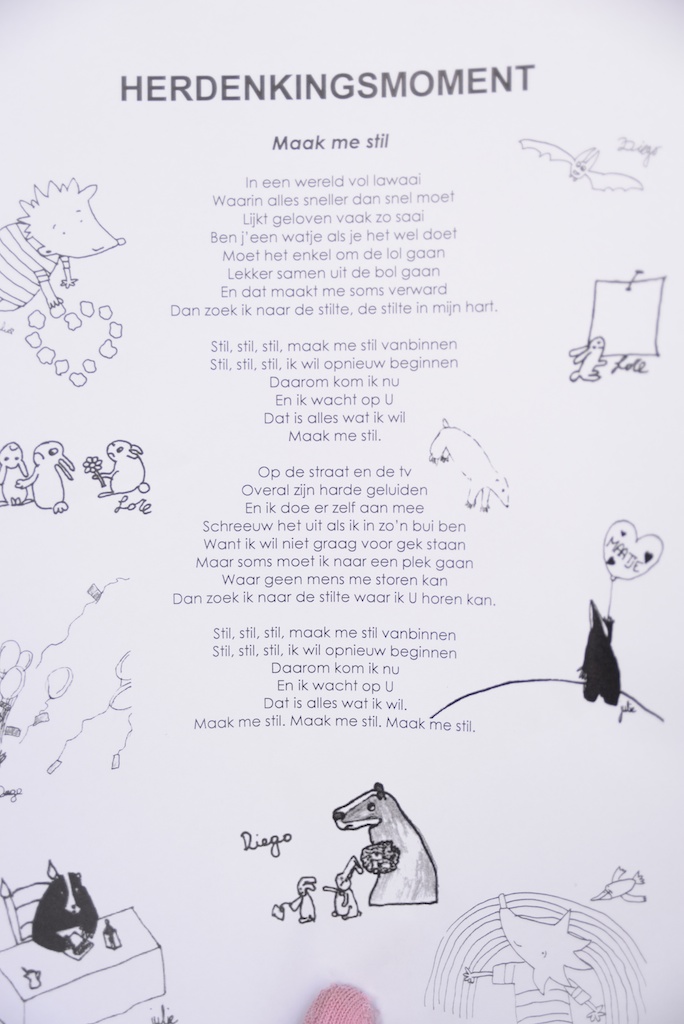 HERDENKINGSMOMENT
Maak me stil
In een wereld vol lawaai
Waarin alles sneller dan snel moet
Lijkt geloven vaak zo saai
Ben j'een watje als je het wel doet
Moet het enkel om de lol gaan
Lekker samen uit de bol gaan
En dat maakt me soms verward
Dan zoek ik naar de stilte, de stilte in mijn hart.
Stil, stil, stil, maak me stil vanbinnen
Stil, stil, stil, ik wil opnieuw beginnen
Daarom kom ik nu
En ik wacht op U
Dat is alles wat ik wil
Maak me stil.
Op de straat en de tv
Overal zijn harde geluiden
En ik doe er zelf aan mee
Schreeuw het uit als ik in zo'n bui ben
Want ik wil niet graag voor gek staan
Maar soms moet ik naar een plek gaan
Waar geen mens me storen kan
Dan zoek ik naar de stilte waar ik U horen kan.
Stil, stil, stil, maak me stil vanbinnen
Stil, stil, stil, ik wil opnieuw beginnen
Daarom kom ik nu
En ik wacht op U
Dat is alles wat ik wil.
Maak me stil. Maak me stil. Maak me stil.
Diego
Lote
Lore
MAATJE
julie
Diego
julie